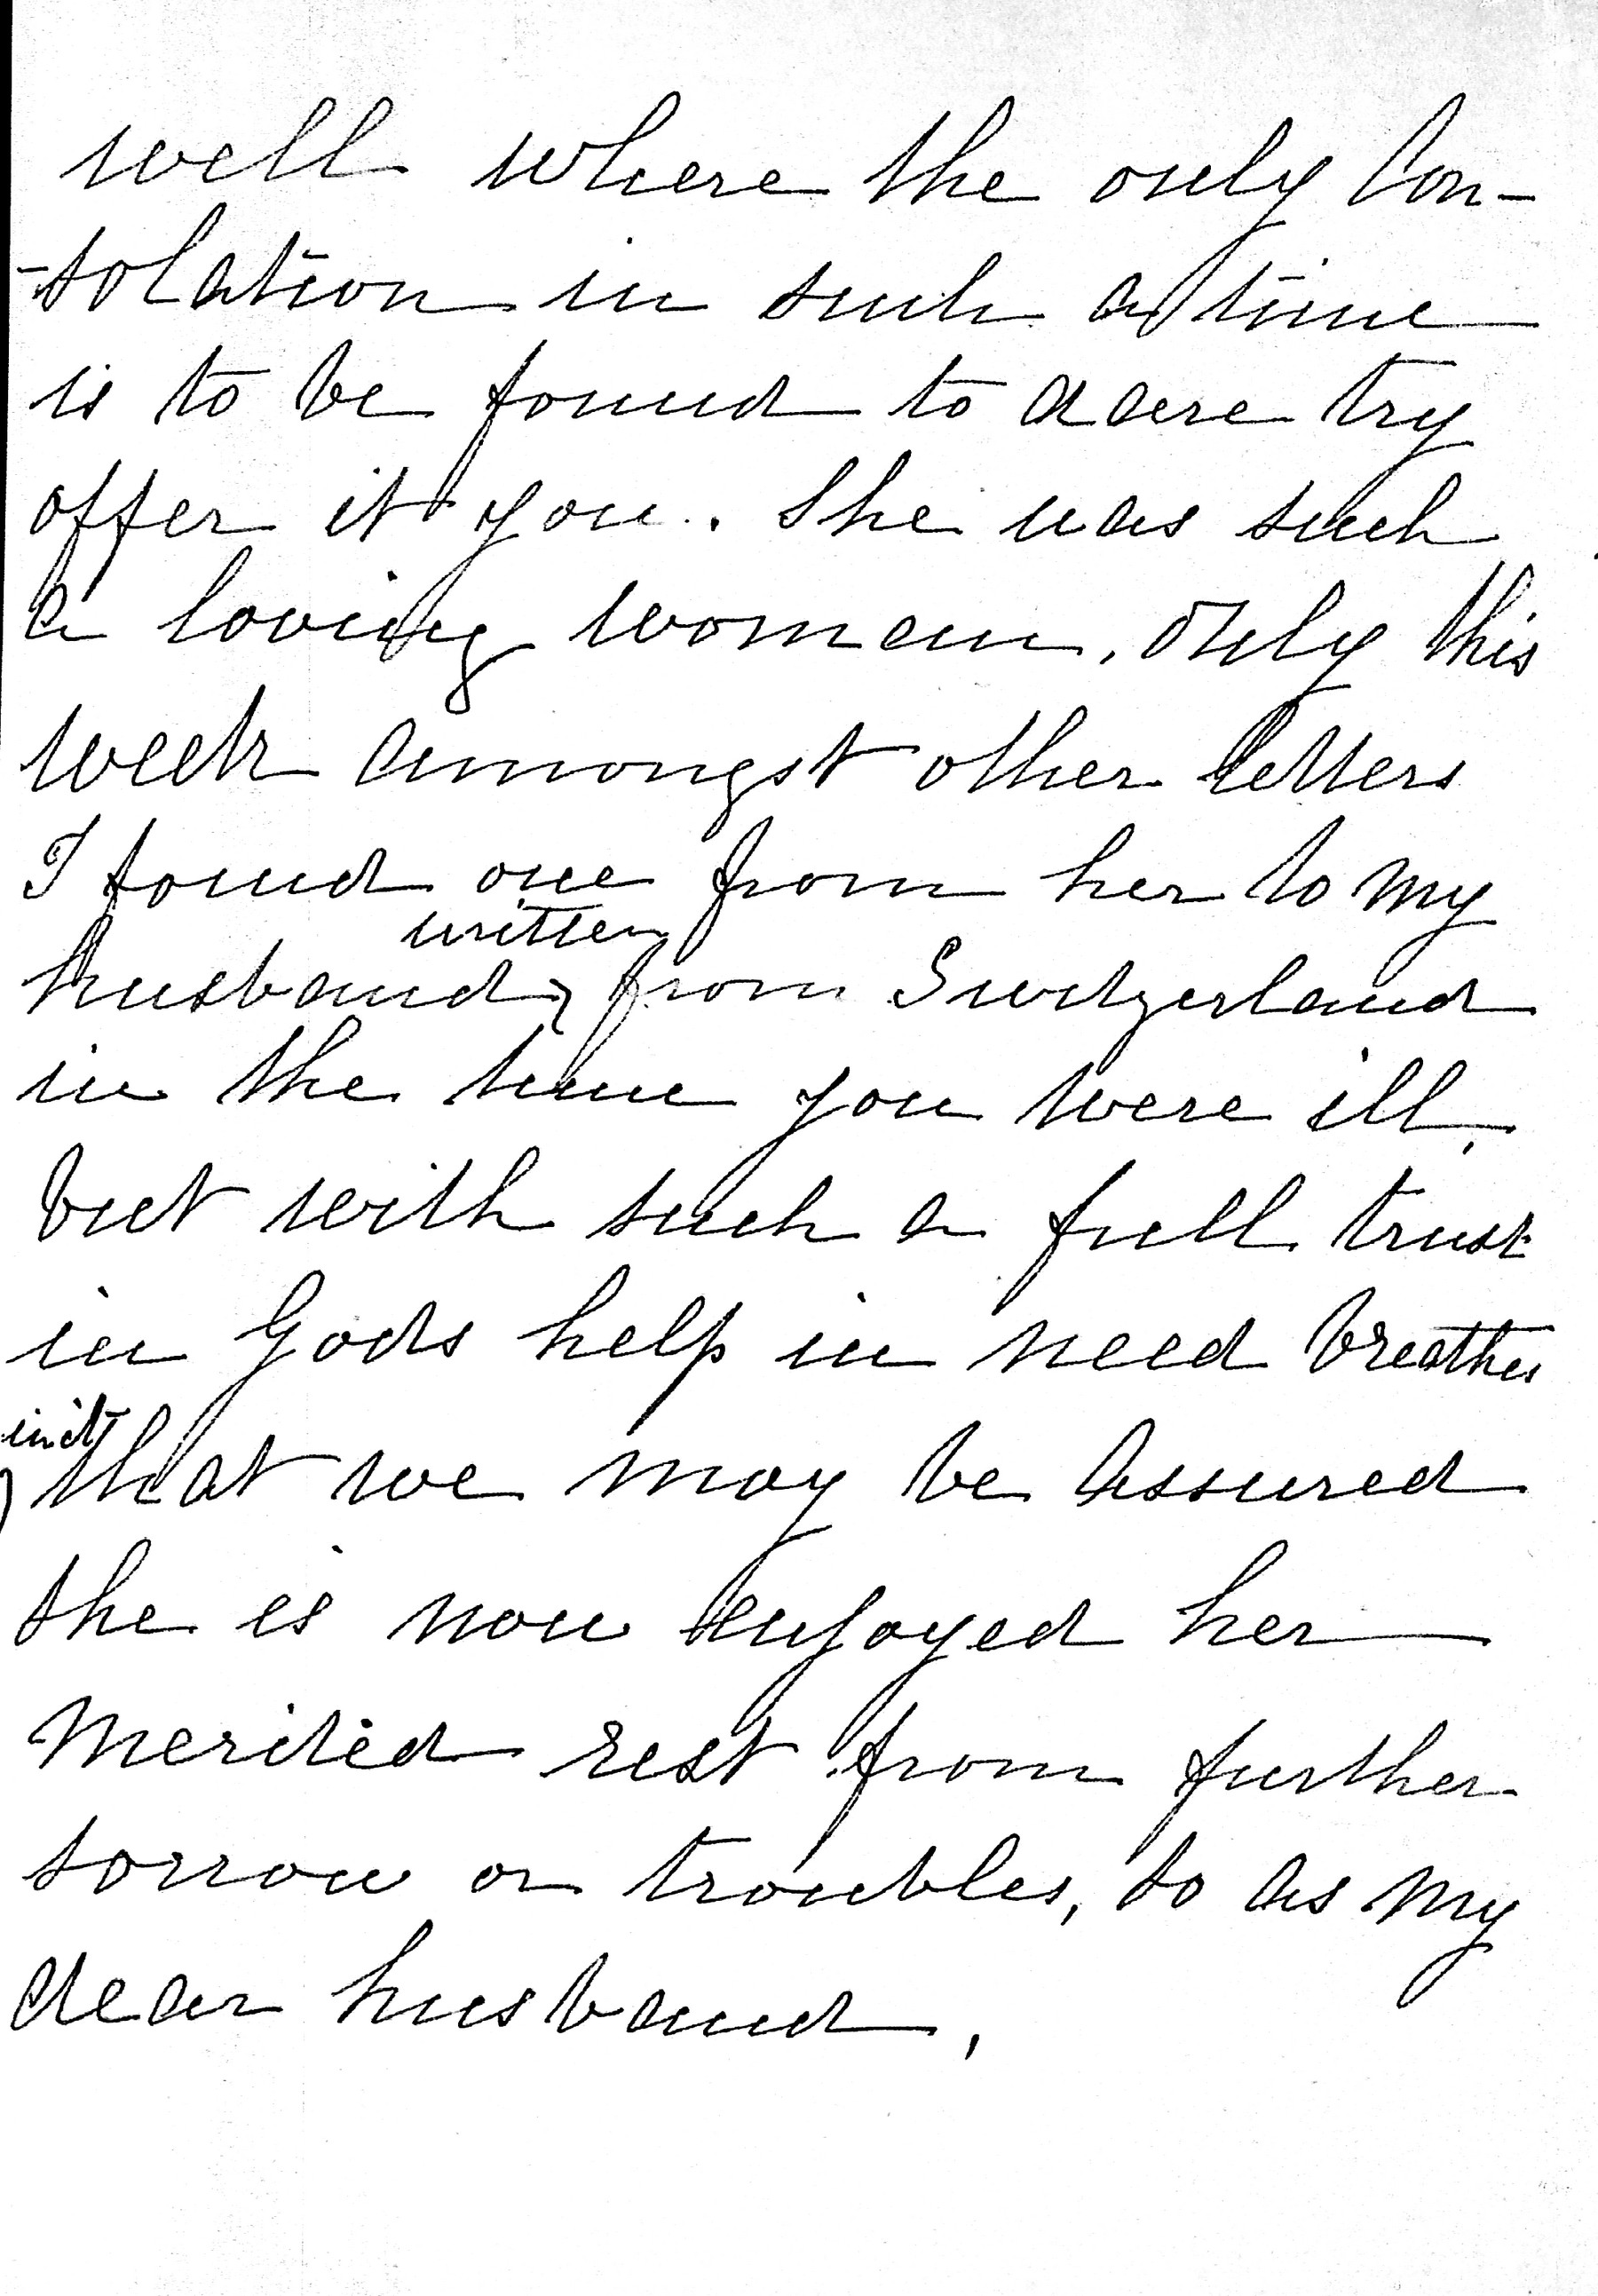 well where the only Con-
-solation in such a time
is to be found to dare try
offer it you. She was such
a loving woman, only this
week amongst other letters
I found one from her to my
written
husband, from Switzerland
in the time you were ill,
but with such a full trust
in Gods help in need breathes
in it
that we may be assured
she is now enjoyed her
merited rest from further
sorrow or troubles, so as my
dear husband,